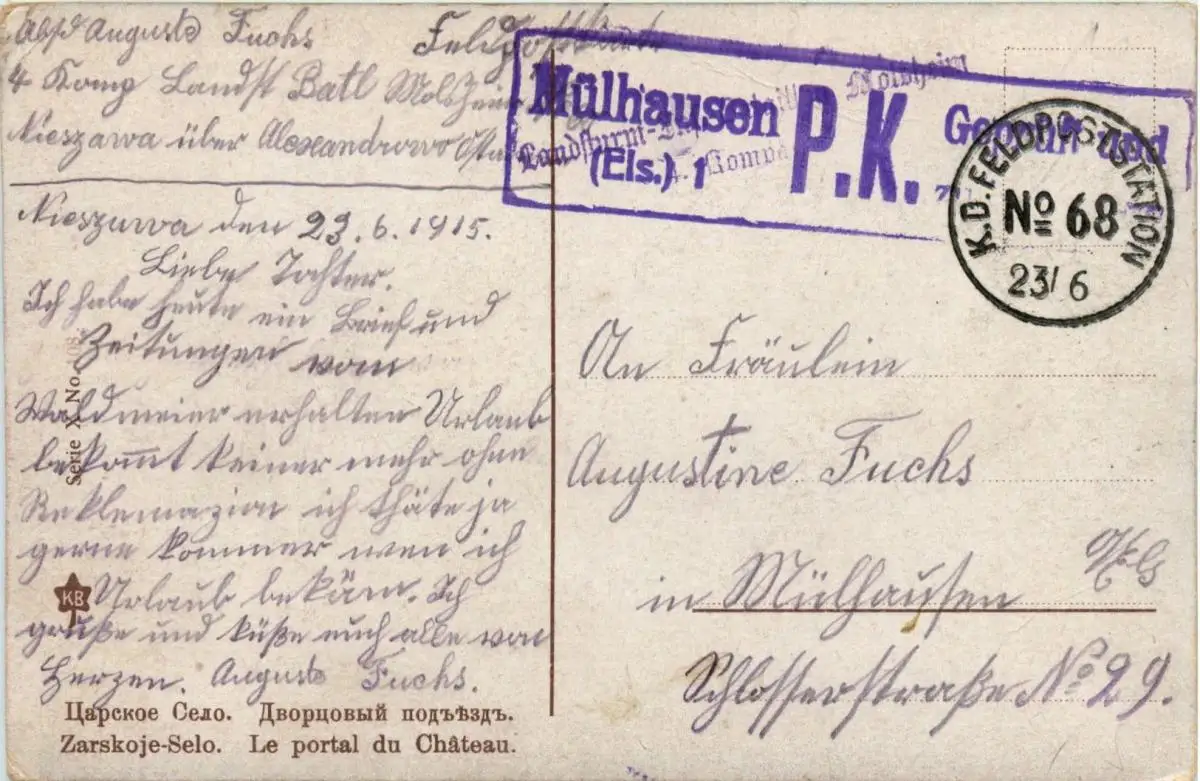 Abs. Auguste Fuchs
4 Komp Landst Batl Molsheim
Nieszawa über Alexandrowo
Feldpostkarte
Mülhausen
(Els.) 1
P.K.
Geprüft und
Landsturm-
Molsheim
Komp
K.D. FELDPOSTSTATION
No 68
23/6
Nieszawa den 23.6.1915.
Liebe Tochter.
Ich habe heute ein Brief und
Zeitungen vom
Waldmeier erhalten Urlaub
bekomt keiner mehr ohne
Reklemazion ich thäte ja
gerne kommer wen ich
Urlaub bekäm. Ich
gruße und küße euch alle von
Herzen. Auguste Fuchs.
An Fräulein
Augustine Fuchs
in Mülhausen
O/Els
Schlosserstraße No 29.
Serie X. No.
KB
Царское Село. Дворцовый подъѣздъ.
Zarskoje-Selo. Le portal du Château.